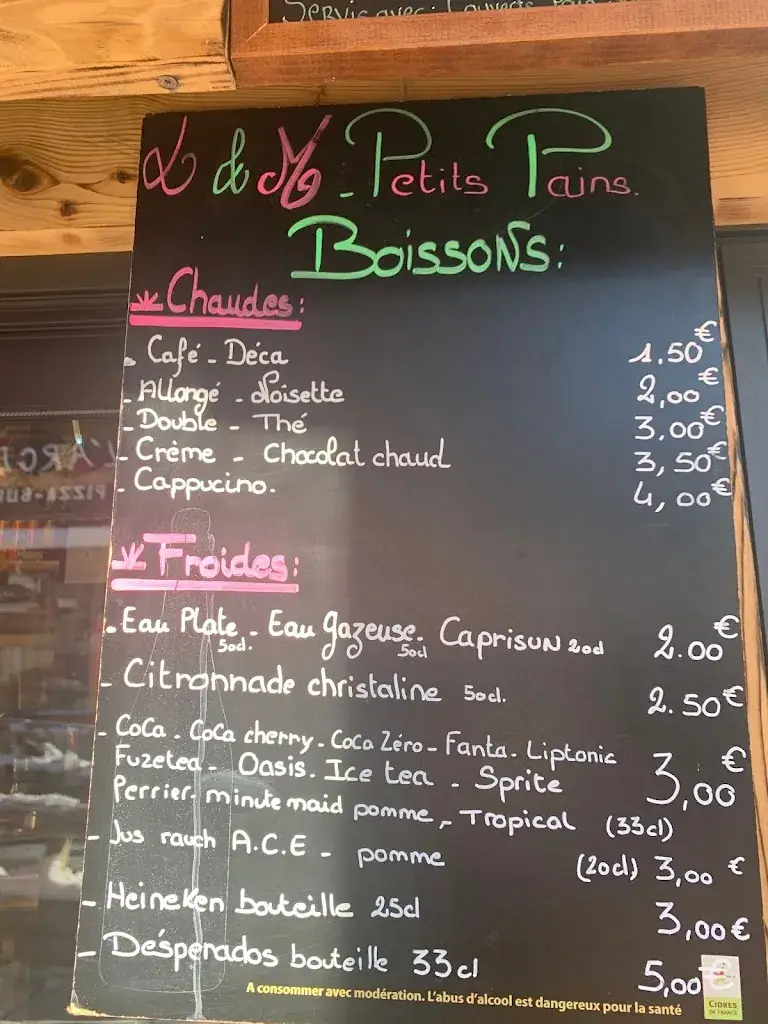 Servis avec:
L & M - Petits Pains.
Boissons:
Chaudes:
- Café - Déca 1.50€
- Allongé - Noisette 2,00€
- Double - Thé 3.00€
- Crème - Chocolat chaud 3,50€
- Cappucino. 4,00€
Froides:
- Eau Plate 50cl. - Eau gazeuse. 50cl Caprisun 20cl 2.00€
- Citronnade christaline 50cl. 2.50€
- Coca - Coca cherry - Coca Zéro - Fanta - Liptonic
Fuzetea - Oasis. Ice tea - Sprite 3,00€
Perrier - minute maid pomme, - Tropical (33cl)
- Jus rauch A.C.E - pomme (20cl) 3,00€
- Heineken bouteille 25cl 3,00€
- Désperados bouteille 33cl 5,00€
A consommer avec modération. L'abus d'alcool est dangereux pour la santé
CIDRES
DE FRANCE